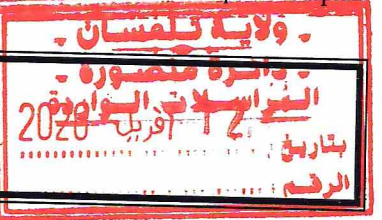 - ولاية تلمسان -
- دائرة منصورة -
المراسلات الواردة
بتاريخ: 12 أفريل 2020
الرقم: